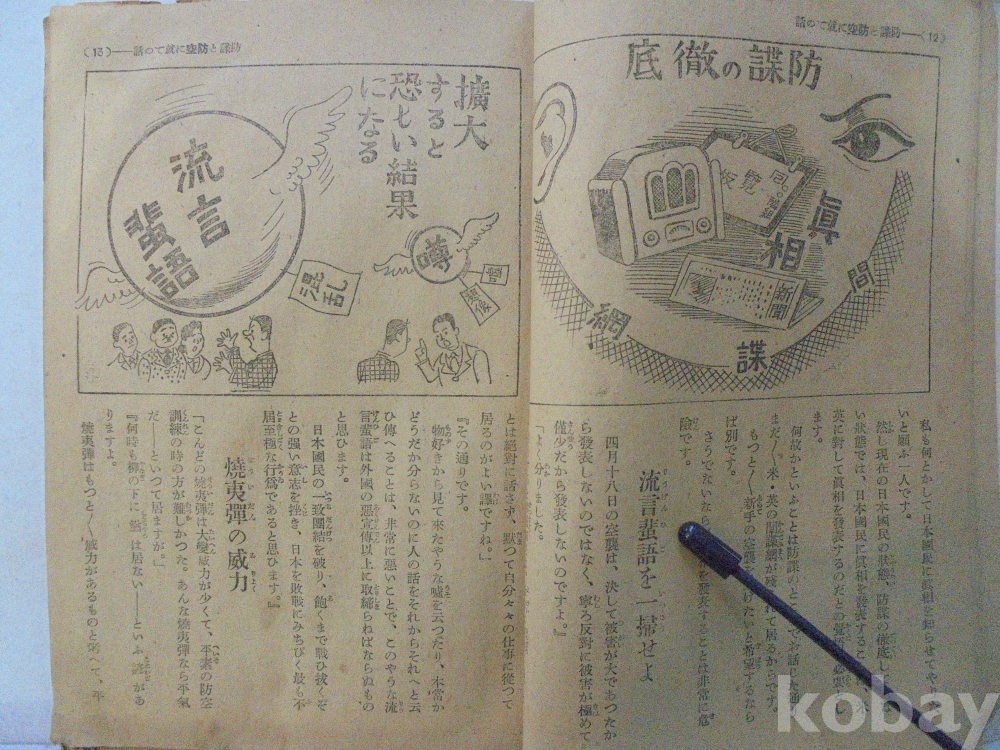 (12)——防諜と防空に就ての話
防諜の徹底
回覧板
眞相
新聞
間
諜
網
私も何とかして日本國民に眞相を知らせてや
いと願ふ一人です。
然し現在の日本國民の狀態、防諜の徹底し
い狀態では、日本國民に眞相を發表するこ
英に對して眞相を發表するのだとの覺悟が必要
ます。
何故かといふことは防諜の
でお話
まだ〱米・英の間諜網が殘
れて居るからです。
もつと〱新手の空襲を
けたいと希望するなら
ば別です。
さうでないなら
を發表することは非常に危
險です。
流言蜚語を一掃せよ
四月十八日の空襲は、決して被害が大であつたか
ら發表しないのではなく、寧ろ反對に被害が極めて
僅少だから發表しないのですよ。』
「よく分りました。
(13)——防諜と防空に就ての話
擴大
すると
恐しい結果
になる
流言
蜚語
混乱
噂
嘘
想像
とは絶對に話さず、默つて自分々々の仕事に從つて
居るのがよい譯ですね。」
『その通りです。
物好きから見て來たやうな嘘を云つたり、本當か
どうだか分らないのに人の話をそれからそれへと云
ひ傳へることは、非常に惡いことで、このやうな流
言蜚語は外國の惡宣傳以上に取締らねばならぬもの
と思ひます。
日本國民の一致團結を破り、飽くまで戰ひ拔くぞ
との强い意志を挫き、日本を敗戰にみちびく最も不
屆至極な行爲であると思ひます。』
燒夷彈の威力
「こんどの燒夷彈は大變威力が少くて、平素の防空
訓練の時の方が難しかつた。あんな燒夷彈なら平氣
だ——といつて居ますが。」
『何時も柳の下に鰌は居ない——といふ諺があ
りますよ。
燒夷彈はもつと〱威力があるものと考へて、平
kobay